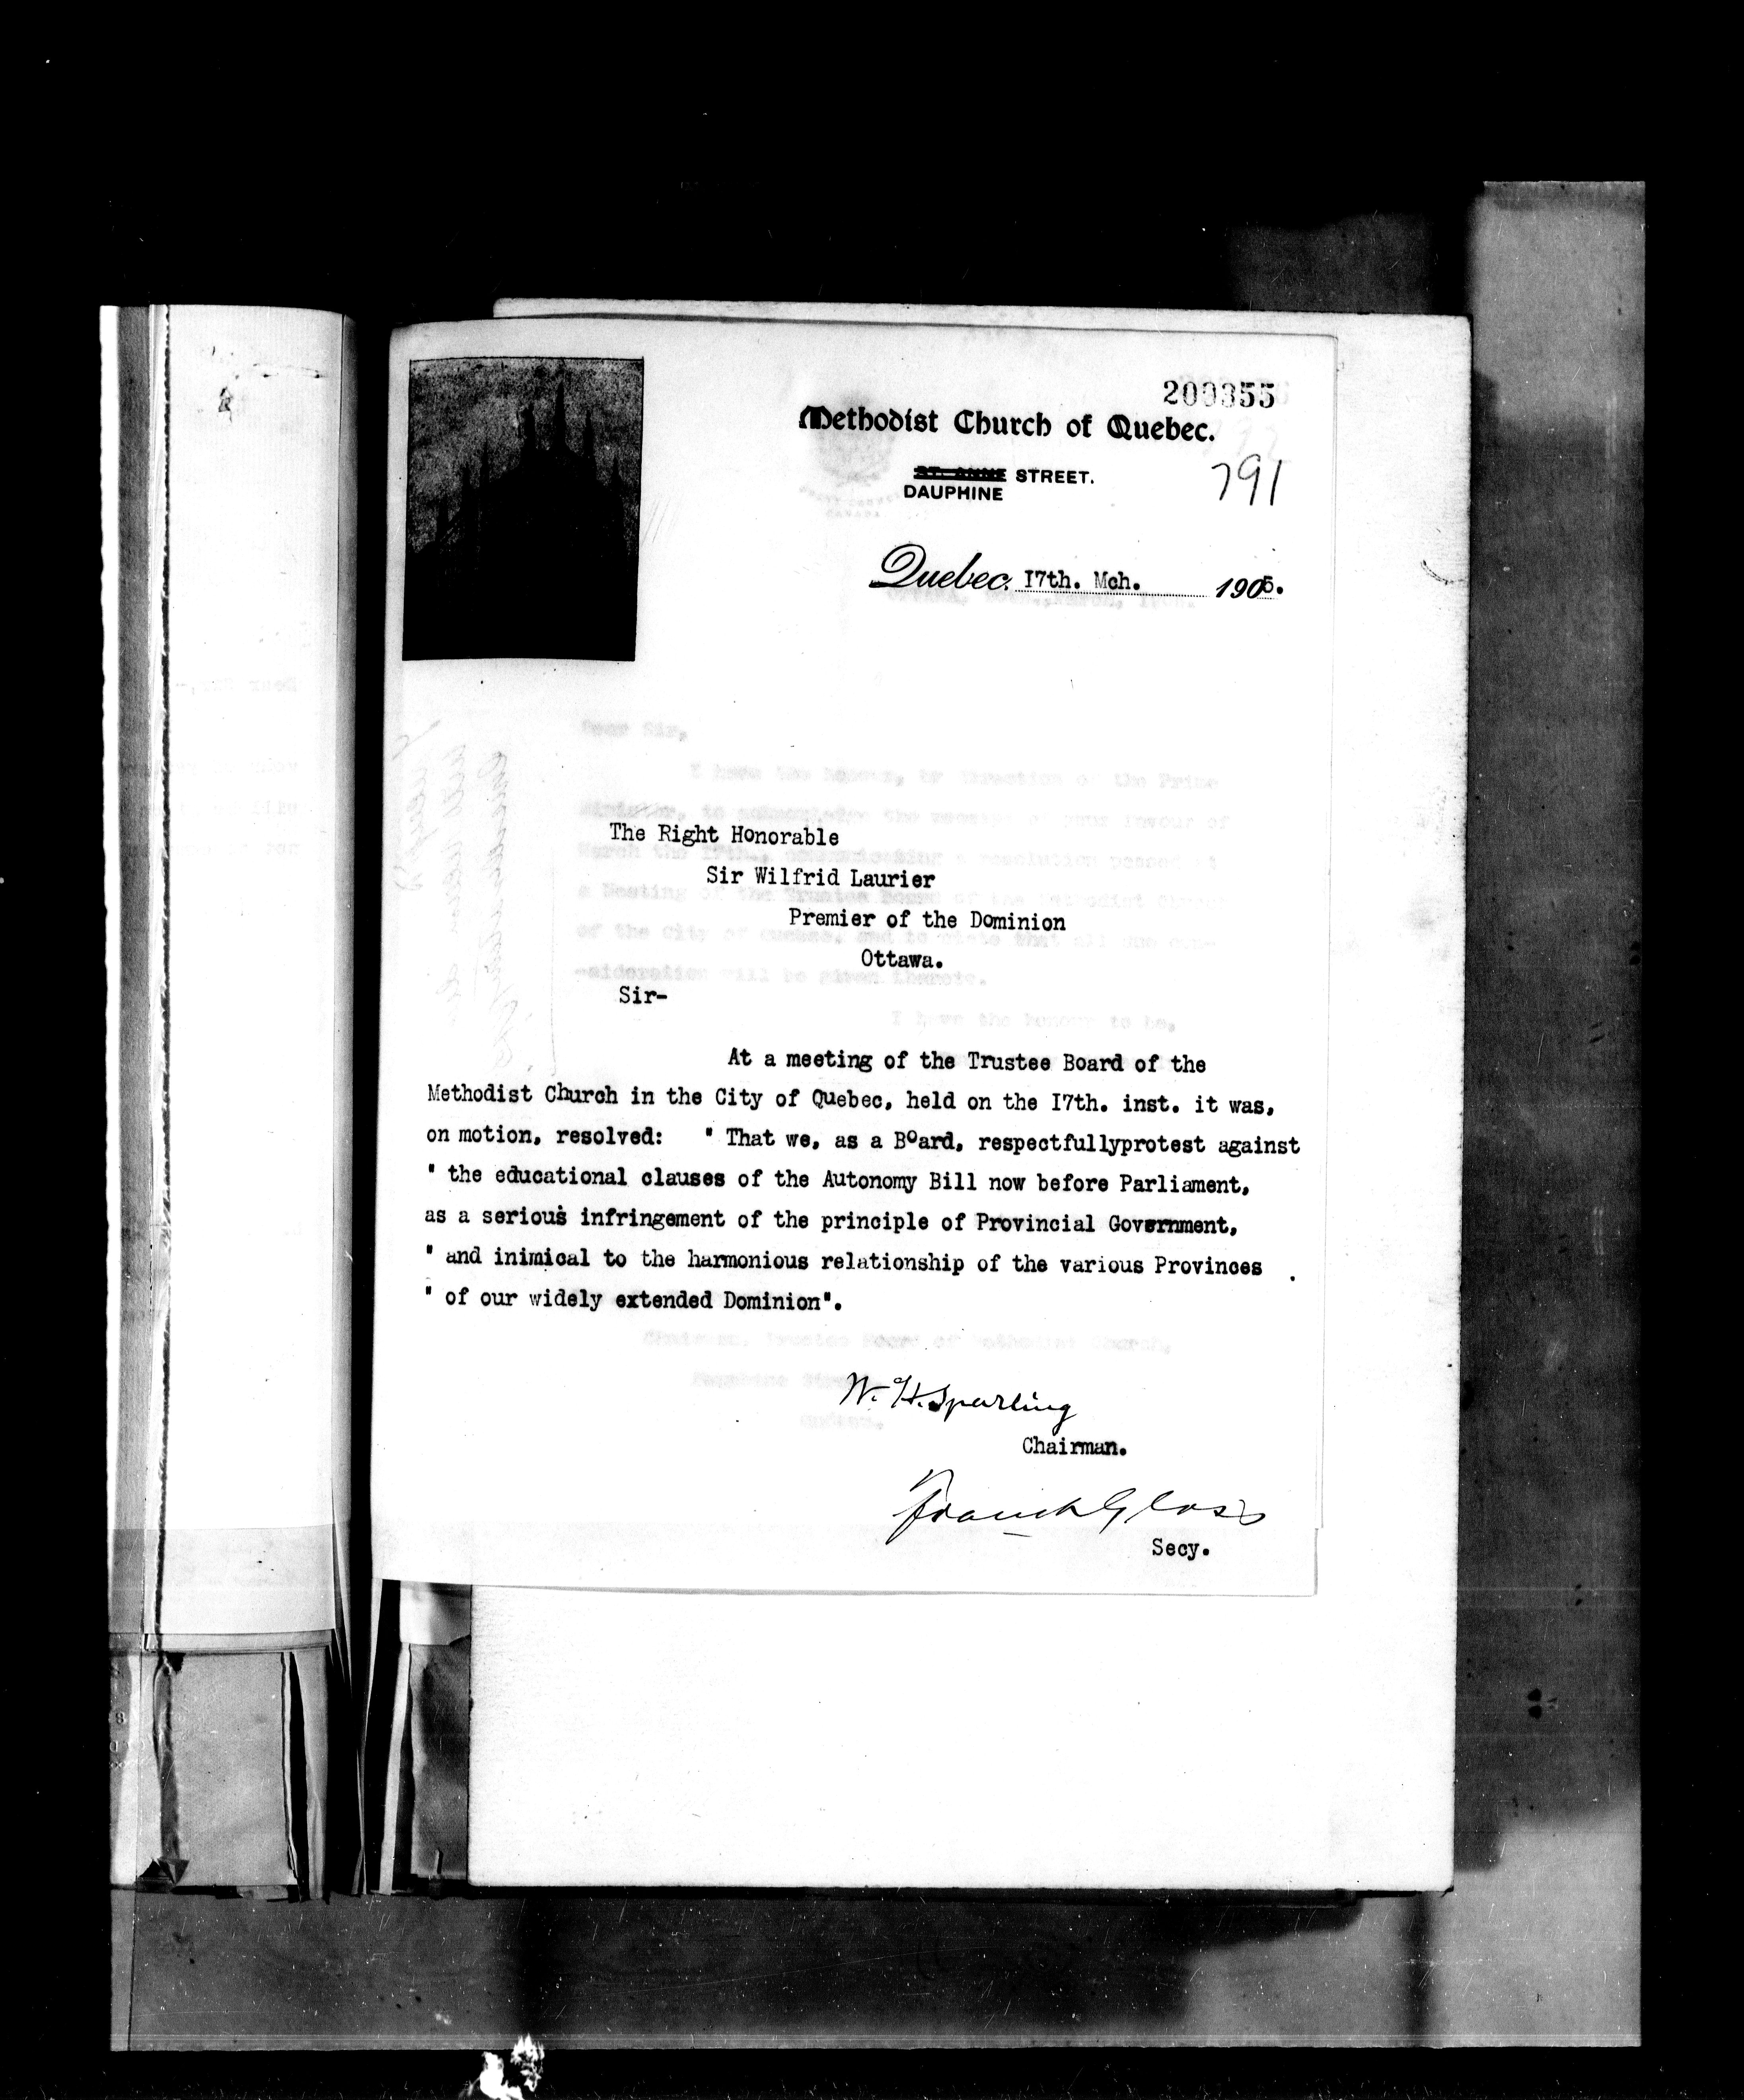 200355
Methodist Church of Quebec.
ST. ANNE STREET.
DAUPHINE
791
Quebec. I7th. Mch. 1905.
Dear Sir,
The Right Honorable
Sir Wilfrid Laurier
Premier of the Dominion
Ottawa.
Sir-
At a meeting of the Trustee Board of the
Methodist Church in the City of Quebec, held on the I7th. inst. it was,
on motion, resolved: " That we, as a Board, respectfullyprotest against
" the educational clauses of the Autonomy Bill now before Parliament,
as a serious infringement of the principle of Provincial Government,
" and inimical to the harmonious relationship of the various Provinces .
" of our widely extended Dominion".
W. H. Sparling
Chairman.
Frank Glass
Secy.